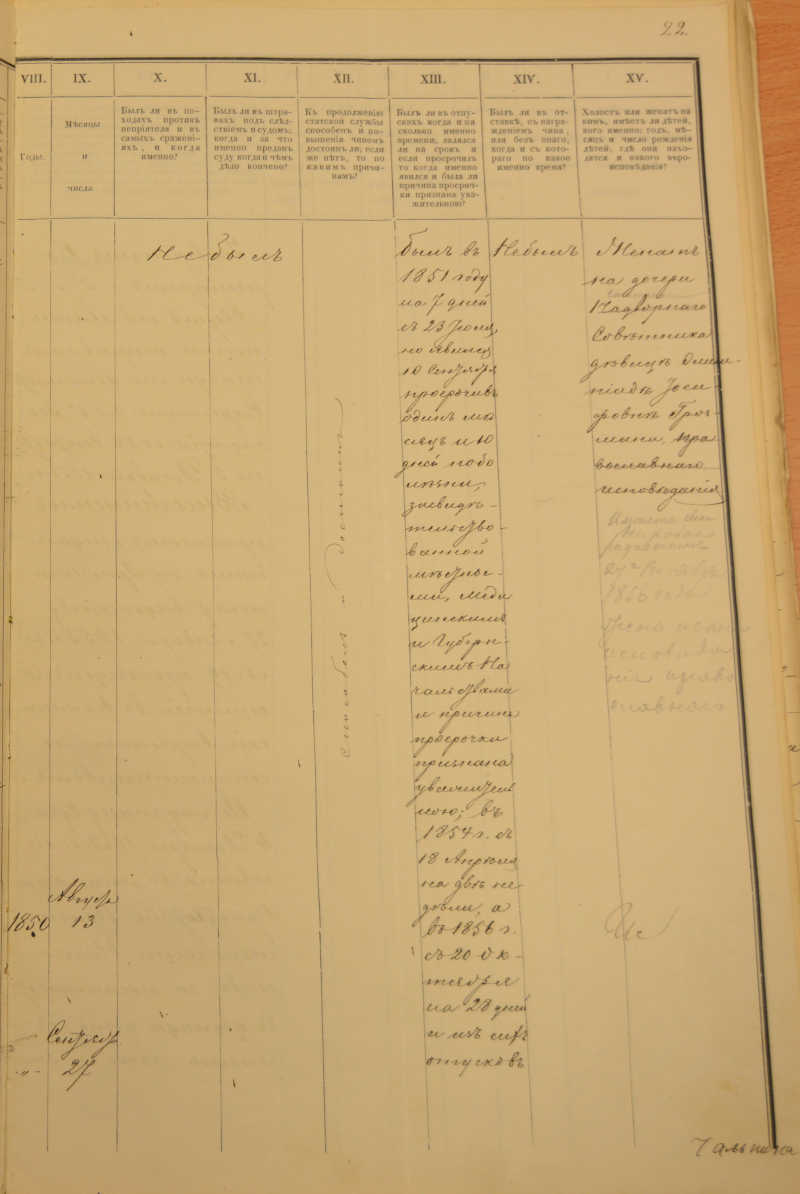 22.
VIII.
IX.
X.
XI.
XII.
XIII.
XIV.
XV.
Годы.
Мѣсяцы
и
числа
Былъ ли въ по-
ходахъ противъ
непріятеля и въ
самыхъ сражені-
яхъ, и когда
именно?
Былъ ли въ штра-
фахъ подъ слѣд-
ствіемъ и судомъ;
когда и за что
именно преданъ
суду когда и чѣмъ
дѣло кончено?
Къ продолженію
статской службы
способенъ и по-
вышенія чиномъ
достоинъ ли; если
же нѣтъ, то по
какимъ причи-
намъ?
Былъ ли въ отпу-
скахъ когда и на
сколько именно
времени, являлся
ли на срокъ и
если просрочилъ
то когда именно
явился и была ли
причина просроч-
ки признана ува-
жительною?
Былъ ли въ от-
ставкѣ, съ награ-
жденіемъ чина,
или безъ онаго,
когда и съ кото-
раго по какое
именно время?
Холостъ или женатъ на
комъ, имѣетъ ли дѣтей,
кого именно; годъ, мѣ-
сяцъ и число рожденія
дѣтей, гдѣ они нахо-
дятся и какого вѣро-
исповѣданія?
Августа
1850 13
Сентяб.
-„- 27
Не былъ
Способенъ и Достоинъ
Былъ въ
1851 году
на 7 дней
съ 23 Іюля,
но явился
10 Сентября
просрочивъ
одинъ мѣ
сяцъ и 10
дней по бо
лѣзни,
засвидѣ-
тельство-
ванной
мѣстны-
ми, меди
цинскимъ
и Губерн-
скимъ На
чальствами
и причина
просрочки
признана
уважитель
ною; въ
1854 г. съ
18 Апрѣля
на двѣ не-
дѣли, а
въ 1856 г.
съ 20 Ок-
тября
на 28 дней
и изъ сихъ
отпусковъ
Небылъ
Женатъ
на дочери
Надворнаго
Совѣтника
дѣвицѣ Олим-
піадѣ Іоси-
фовнѣ
пра
вославнаго
исповѣданія
1850 года
Жена
исповѣда
нія право
славнаго